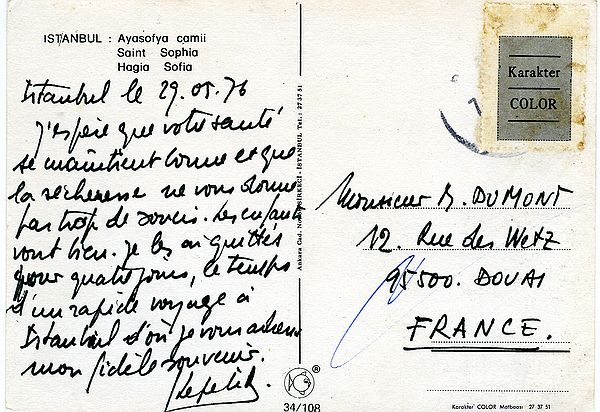 ISTANBUL : Ayasofya camii
Saint Sophia
Hagia Sofia
Istanbul le 29.05.76
J'espère que votre santé
se maintient bonne et que
la sécheresse ne vous donne
pas trop de soucis. Les enfants
vont bien. Je les ai quittés
pour quatre jours, le temps
d'un rapide voyage à
Istanbul d'où je vous adresse
mon fidèle souvenir.
Karakter
COLOR
Monsieur DUMONT
12. Rue des Wetz
95500. DOUAI
FRANCE.
Ankara Cad. SİRKECİ - İSTANBUL Tel.: 27 37 51
®
34/108
Karakter COLOR Matbaası 27 37 51